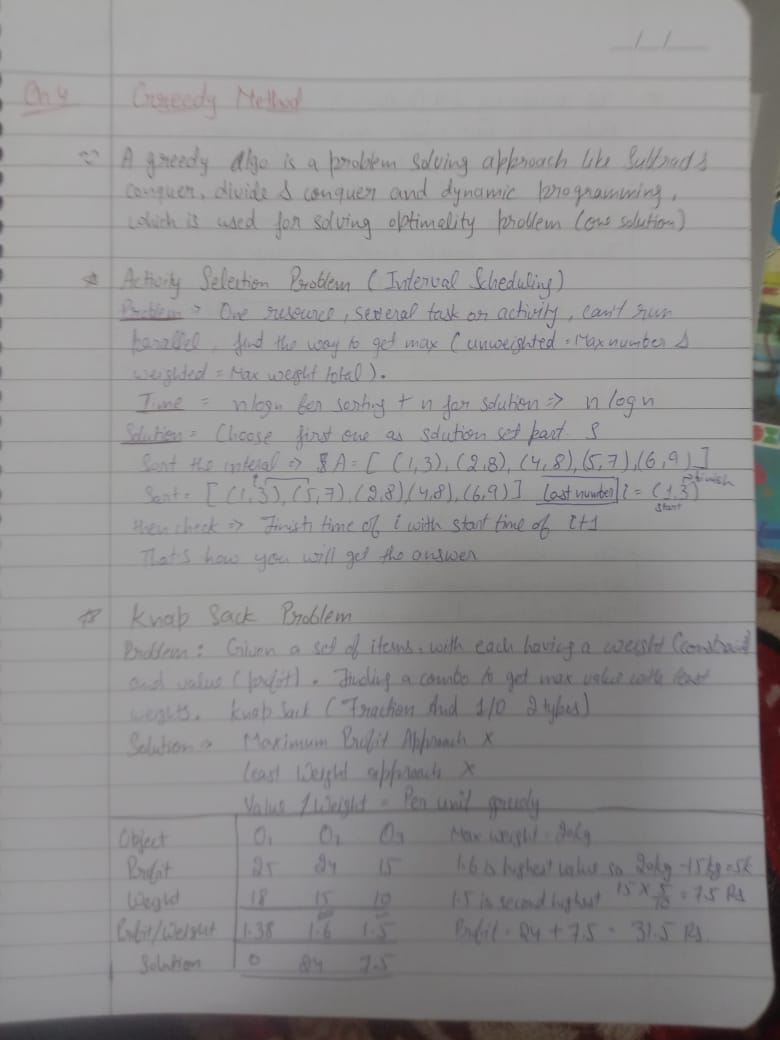 Ch 4 Greedy Method
A greedy algo is a problem solving approach like Subtract &
conquer, divide & conquer and dynamic programming,
which is used for solving optimality problem (one solution)
* Activity Selection Problem (Interval Scheduling)
Problem → One resource, several task or activity, can't run
parallel, find the way to get max (unweighted = Max number &
weighted = Max weight total).
Time = nlogn for sorting + n for solution => n logn
Solution = Choose first one as solution set part S
Sort the interval => A = [ (1,3), (2,8), (4,8), (5,7), (6,9) ]
Sort = [ (1,3), (5,7), (2,8), (4,8), (6,9) ] Last number i = (1,3)
finish
start
then check => Finish time of i with start time of i+1
That's how you will get the answer
* Knap Sack Problem
Problem : Given a set of items, with each having a weight (constraint
and value (profit). Finding a combo to get max value with least
weights. Knap Sack (Fraction And 1/0 2 types)
Solution → Maximum Profit Approach x
Least Weight approach x
Value / Weight = Per unit greedy
Object O1 O2 O3 Max weight = 20kg
Profit 25 24 15 1.6 is highest value so 20kg - 15kg = 5k
Weight 18 15 10 1.5 is second highest 15 x 5/10 = 7.5 Rs
Profit/Weight 1.38 1.6 1.5 Profit = 24 + 7.5 = 31.5 Rs.
Solution 0 24 7.5